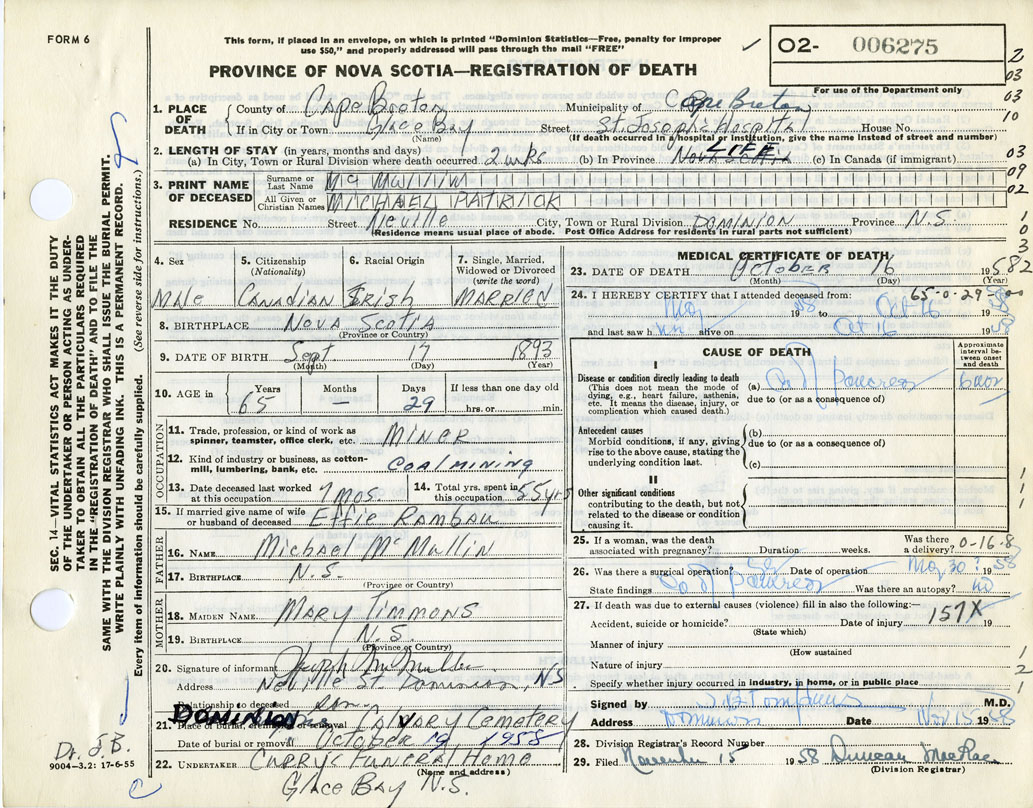 FORM 6
This form, if placed in an envelope, on which is printed "Dominion Statistics—Free, penalty for improper
use $50," and properly addressed will pass through the mail "FREE"
✓
O2- 006275
For use of the Department only
PROVINCE OF NOVA SCOTIA—REGISTRATION OF DEATH
2
03
03
10
03
09
02
0
3
1. PLACE OF DEATH
County of Cape Breton Municipality of Cape Breton
If in City or Town Glace Bay Street St. Joseph's Hospital House No.
(Name) (If death occurred in a hospital or institution, give the name instead of street and number)
2. LENGTH OF STAY (in years, months and days) LIFE
(a) In City, Town or Rural Division where death occurred 2 wks (b) In Province Nova Scotia (c) In Canada (if immigrant)
3. PRINT NAME OF DECEASED
Surname or Last Name Mc Mullin
All Given or Christian Names MICHAEL PATRICK
RESIDENCE No. Street Neville City, Town or Rural Division DOMINION Province N.S.
(Residence means usual place of abode. Post Office Address for residents in rural parts not sufficient)
4. Sex
Male
5. Citizenship
(Nationality)
Canadian
6. Racial Origin
Irish
7. Single, Married, Widowed or Divorced
(write the word)
MARRIED
8. BIRTHPLACE Nova Scotia
(Province or Country)
9. DATE OF BIRTH Sept 17 1893
(Month) (Day) (Year)
10. AGE in
Years 65
Months
Days 29
If less than one day old
hrs. or min.
OCCUPATION
11. Trade, profession, or kind of work as
spinner, teamster, office clerk, etc. MINER
12. Kind of industry or business, as cotton-
mill, lumbering, bank, etc. COAL MINING
13. Date deceased last worked
at this occupation 7 mos
14. Total yrs. spent in
this occupation 55 yrs
15. If married give name of wife
or husband of deceased Effie Rambau
FATHER
16. NAME Michael McMullin
17. BIRTHPLACE N.S.
(Province or Country)
MOTHER
18. MAIDEN NAME MARY TIMMONS
19. BIRTHPLACE N.S.
(Province or Country)
20. Signature of informant Joseph McMullin
Address Neville St. Dominion, NS
Relationship to deceased
21. Place of burial, cremation or removal DOMINION Calvary Cemetery
Date of burial or removal October 19 1958
22. UNDERTAKER Curry's Funeral Home
(Name and address)
Glace Bay N.S.
MEDICAL CERTIFICATE OF DEATH
23. DATE OF DEATH October 16 1958 2
(Month) (Day) (Year)
24. I HEREBY CERTIFY that I attended deceased from: 65-0-29
May 1958 to Oct 16 1958
and last saw him alive on Oct 16 1958
CAUSE OF DEATH
Approximate interval between onset and death
I
Disease or condition directly leading to death
(This does not mean the mode of
dying, e.g., heart failure, asthenia,
etc. It means the disease, injury, or
complication which caused death.)
(a) Ca of pancreas
due to (or as a consequence of)
Antecedent causes
Morbid conditions, if any, giving
rise to the above cause, stating the
underlying condition last.
(b)
due to (or as a consequence of)
(c)
II
Other significant conditions
contributing to the death, but not
related to the disease or condition
causing it.
1
1
1
25. If a woman, was the death
associated with pregnancy? Duration weeks. Was there a delivery? 0-16-8
26. Was there a surgical operation? yes Date of operation May 30? 1958
State findings Ca of pancreas Was there an autopsy? no
27. If death was due to external causes (violence) fill in also the following:—
Accident, suicide or homicide? Date of injury 19
(State which)
157X
Manner of injury
(How sustained
Nature of injury
Specify whether injury occurred in industry, in home, or in public place
1
2
1
Signed by J.B. Tompkins M.D.
Address Dominion Date Nov 15 1958
28. Division Registrar's Record Number
29. Filed November 15 1958 Duncan MacRae
(Division Registrar)
SEC. 14—VITAL STATISTICS ACT MAKES IT THE DUTY
OF THE UNDERTAKER OR PERSON ACTING AS UNDER-
TAKER TO OBTAIN ALL THE PARTICULARS REQUIRED
IN THE "REGISTRATION OF DEATH" AND TO FILE THE
SAME WITH THE DIVISION REGISTRAR WHO SHALL ISSUE THE BURIAL PERMIT.
WRITE PLAINLY WITH UNFADING INK. THIS IS A PERMANENT RECORD.
Every item of information should be carefully supplied. (See reverse side for instructions.)
Dr. J.B.
9004-3.2: 17-6-55
C